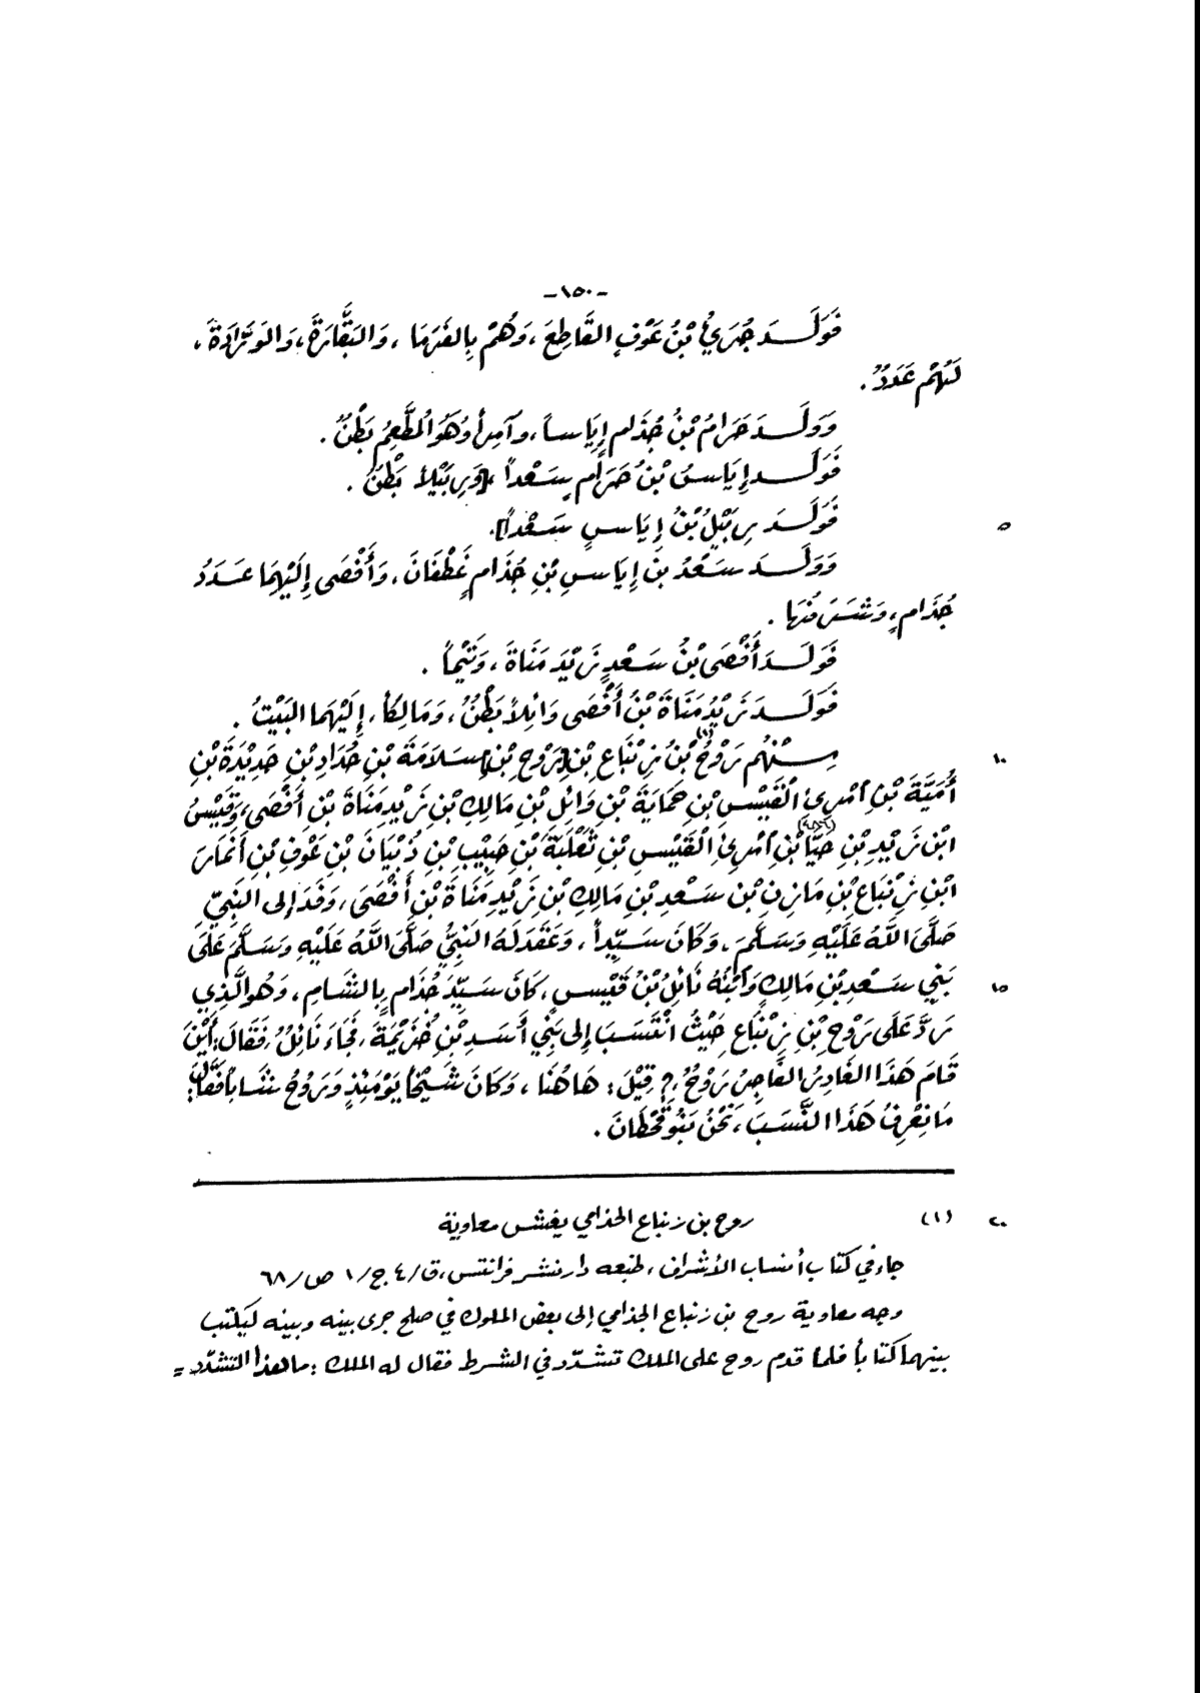 -١٥٠-
فَوَلَـدَ جُرَيُّ بْنُ عَوْفٍ القَاطِعَ، وَهُمْ بِالفَرَمَا، وَالبَقَّارَةَ، وَالوَرَّادَةَ،
لَهُمْ عَدَدٌ.
وَوَلَـدَ حَرَامُ بْنُ جُذَامٍ إِيَاساً، وَآمِراً وَهُوَ المُطْعِمُ بَطْنٌ.
فَوَلَـدَ إِيَاسُ بْنُ حَرَامٍ سَعْداً، [وَرِبَيْلاً بَطْنٌ.
٥
فَوَلَـدَ رِبَيْلُ بْنُ إِيَاسٍ سَعْداً].
وَوَلَـدَ سَعْدُ بن إِيَاسِ بْنِ جُذَامٍ غَطْفَانَ، وَأَفْصَى إِلَيْهِمَا عَدَدُ
جُذَامٍ، وَشَرَفُهَا.
فَوَلَـدَ أَفْصَى بْنُ سَعْدٍ زَيْدَ مَنَاةَ، وَتَيْماً.
فَوَلَـدَ زَيْدُ مَنَاةَ بْنُ أَفْصَى وَائِلاً بَطْنٌ، وَمَالِكاً، إِلَيْهِمَا البَيْتُ.
١٠
مِـنْهُم رَوْحُ(١) بْنُ زِنْبَاعِ بْنِ [رَوْحِ بْنِ] سَلَامَةَ بْنِ حُدَادِ بْنِ حَدِيْدَةَ بْنِ
أُمَيَّةَ بْنِ امْرِئِ القَيْسِ بْنِ حَمَايَةَ بْنِ وَائِلِ بْنِ مَالِكِ بْنِ زَيْدِ مَنَاةَ بْنِ أَفْصَى، وَقَيْسُ
ابْنُ زَيْدِ بْنِ حَيَّا بْنِ امْرِئِ القَيْسِ بْنِ ثَعْلَبَةَ بْنِ حَبِيْبِ بْنِ ذُبْيَانَ بْنِ عَوْفِ بْنِ أَنْمَارَ
ابْنِ زِنْبَاعِ بْنِ مَازِنِ بْنِ سَعْدِ بْنِ مَالِكِ بْنِ زَيْدِ مَنَاةَ بْنِ أَفْصَى، وَفَدَ إلى النَّبِيّ
صَلَّى اللَّهُ عَلَيْهِ وَسَلَّمَ، وَكَانَ سَيِّداً، وَعَقَدَ لَهُ النَّبِيُّ صَلَّى اللَّهُ عَلَيْهِ وَسَلَّمَ عَلَى
١٥
بَنِي سَعْدِ بْنِ مَالِكٍ وَابْنُهُ نَائِلُ بْنُ قَيْسٍ، كَانَ سَيِّدَ جُذَامٍ بِالشَّامِ، وَهُوَ الَّذِي
رَدَّ عَلَى رَوْحِ بْنِ زِنْبَاعٍ حَيْثُ انْتَسَبَ إِلى بَنِي أَسَدِ بْنِ خُزَيْمَةَ، فَجَاءَ نَائِلٌ، فَقَالَ: أَيْنَ
قَامَ هَذَا الغَادِرُ الفَاجِرُ رَوْحٌ؟ قِيْلَ: هَاهُنَا، وَكَانَ شَيْخاً يَوْمَئِذٍ وَرَوْحُ شَاباً فَقَالَ:
مَا نَعْرِفُ هَذَا النَّسَبَ، نَحْنُ بَنُو قَحْطَانَ.
٢٠
(١) روح بن زنباع الجذامي يغشّ معاوية
جاء في كتاب أنساب الأشراف، طبعه دار نشر فرانتس، ق/٤ ج/١ ص/٦٨
وجه معاوية روح بن زنباع الجذامي إلى بعض الملوك في صلح جرى بينه وبينه ليكتب
بينهما كتاباً فلما قدم روح على الملك تشدّد في الشرط فقال له الملك: ما هذا التشدّد =